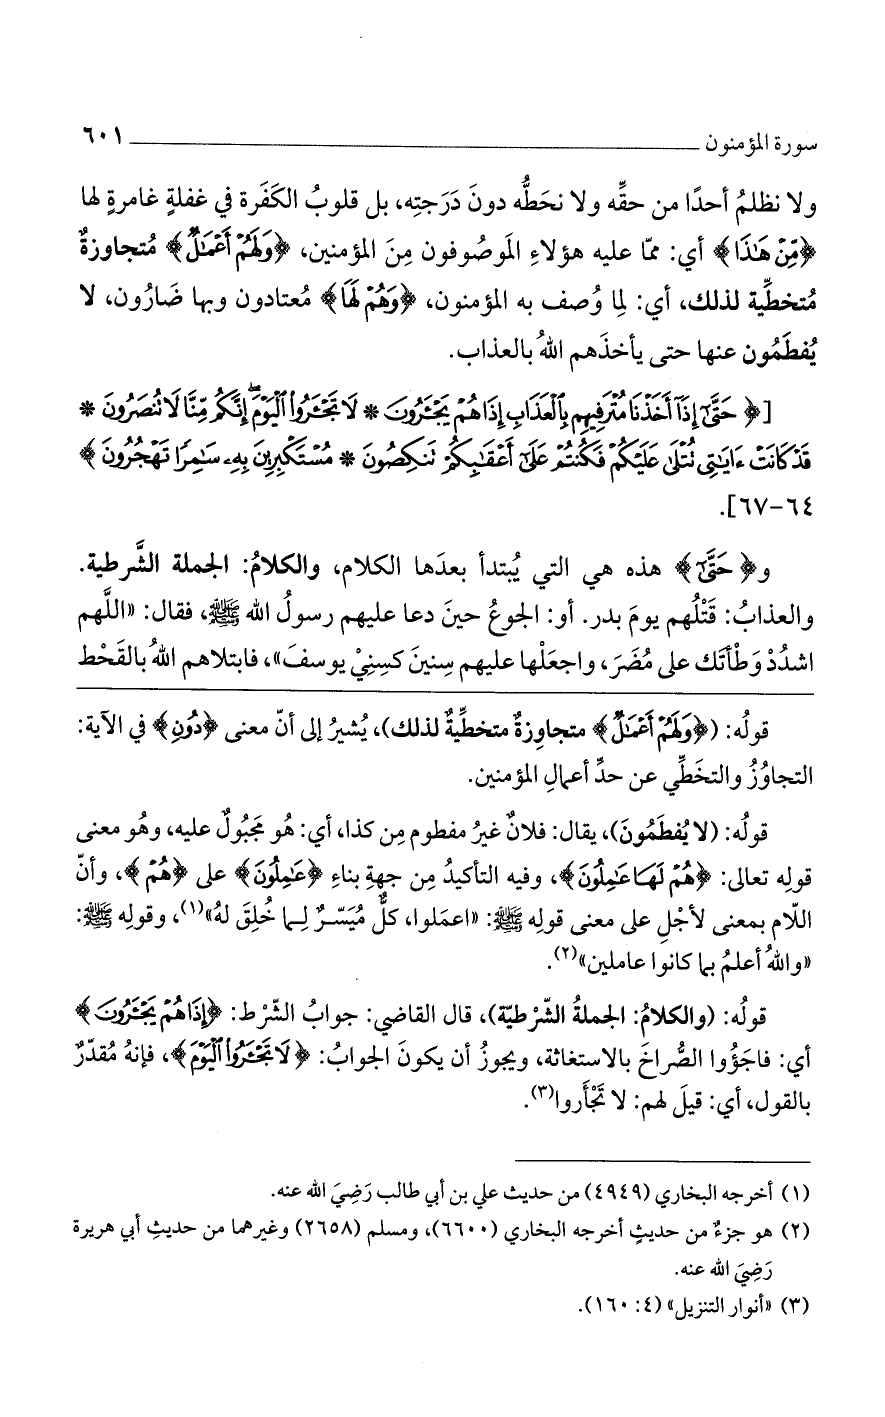 سورة المؤمنون ٦٠١
ولا نظلمُ أحدًا من حقِّه ولا نحَطُّه دونَ دَرَجتِه، بل قلوبُ الكَفَرة في غفلةٍ غامرةٍ لها
﴿مِّنْ هَٰذَا﴾ أي: ممّا عليه هؤلاءِ المَوصُوفون مِنَ المؤمنين، ﴿وَلَهُمْ أَعْمَٰلٌ﴾ مُتجاوزةٌ
مُتخطِّية لذلك، أي: لِما وُصف به المؤمنون، ﴿وَهُمْ لَهَا﴾ مُعتادون وبها ضَارُون، لا
يُفطَمُون عنها حتى يأخذَهم اللهُ بالعذاب.
[﴿حَتَّىٰٓ إِذَآ أَخَذْنَا مُتْرَفِيهِم بِٱلْعَذَابِ إِذَا هُمْ يَجْـَٔرُونَ * لَا تَجْـَٔرُوا۟ ٱلْيَوْمَ ۖ إِنَّكُم مِّنَّا لَا تُنصَرُونَ *
قَدْ كَانَتْ ءَايَٰتِى تُتْلَىٰ عَلَيْكُمْ فَكُنتُمْ عَلَىٰٓ أَعْقَٰبِكُمْ تَنكِصُونَ * مُسْتَكْبِرِينَ بِهِۦ سَٰمِرًا تَهْجُرُونَ﴾
٦٤-٦٧].
و﴿حَتَّىٰٓ﴾ هذه هي التي يُبتدأ بعدَها الكلام، والكلامُ: الجملة الشَّرطية.
والعذابُ: قَتْلُهم يومَ بدر. أو: الجوعُ حينَ دعا عليهم رسولُ الله ﷺ، فقال: «اللَّهم
اشدُدْ وَطْأتَك على مُضَرَ، واجعَلْها عليهم سِنينَ كسِنِيْ يوسفَ»، فابتلاهم اللهُ بالقَحْط
قولُه: (﴿وَلَهُمْ أَعْمَٰلٌ﴾ متجاوِزةٌ متخطِّيةٌ لذلك)، يُشيرُ إلى أنّ معنى ﴿دُونِ﴾ في الآية:
التجاوُزُ والتخَطِّي عن حدِّ أعمالِ المؤمنين.
قولُه: (لا يُفطَمُونَ)، يقال: فلانٌ غيرُ مفطوم مِن كذا، أي: هُو مَجبُولٌ عليه، وهُو معنى
قولِه تعالى: ﴿هُمْ لَهَا عَٰمِلُونَ﴾، وفيه التأكيدُ مِن جهةِ بناءِ ﴿عَٰمِلُونَ﴾ على ﴿هُمْ﴾، وأنّ
اللّام بمعنى لأجْلِ على معنى قولِه ﷺ: «اعمَلوا، كلٌّ مُيَسّرٌ لِما خُلِقَ لهُ»(١)، وقولِه ﷺ:
«واللهُ أعلمُ بما كانوا عاملين»(٢).
قولُه: (والكلامُ: الجملةُ الشّرْطيّة)، قال القاضي: جوابُ الشّرْط: ﴿إِذَا هُمْ يَجْـَٔرُونَ﴾
أي: فاجَؤُوا الصُّراخَ بالاستغاثة، ويجوزُ أن يكونَ الجوابُ: ﴿لَا تَجْـَٔرُوا۟ ٱلْيَوْمَ﴾، فإنهُ مُقدّرٌ
بالقول، أي: قيلَ لهم: لا تَجْأَروا(٣).
(١) أخرجه البخاري (٤٩٤٩) من حديث علي بن أبي طالب رَضِيَ الله عنه.
(٢) هو جزءٌ من حديثٍ أخرجه البخاري (٦٦٠٠)، ومسلم (٢٦٥٨) وغيرهما من حديثِ أبي هريرة
رَضِيَ الله عنه.
(٣) «أنوار التنزيل» (٤: ١٦٠).